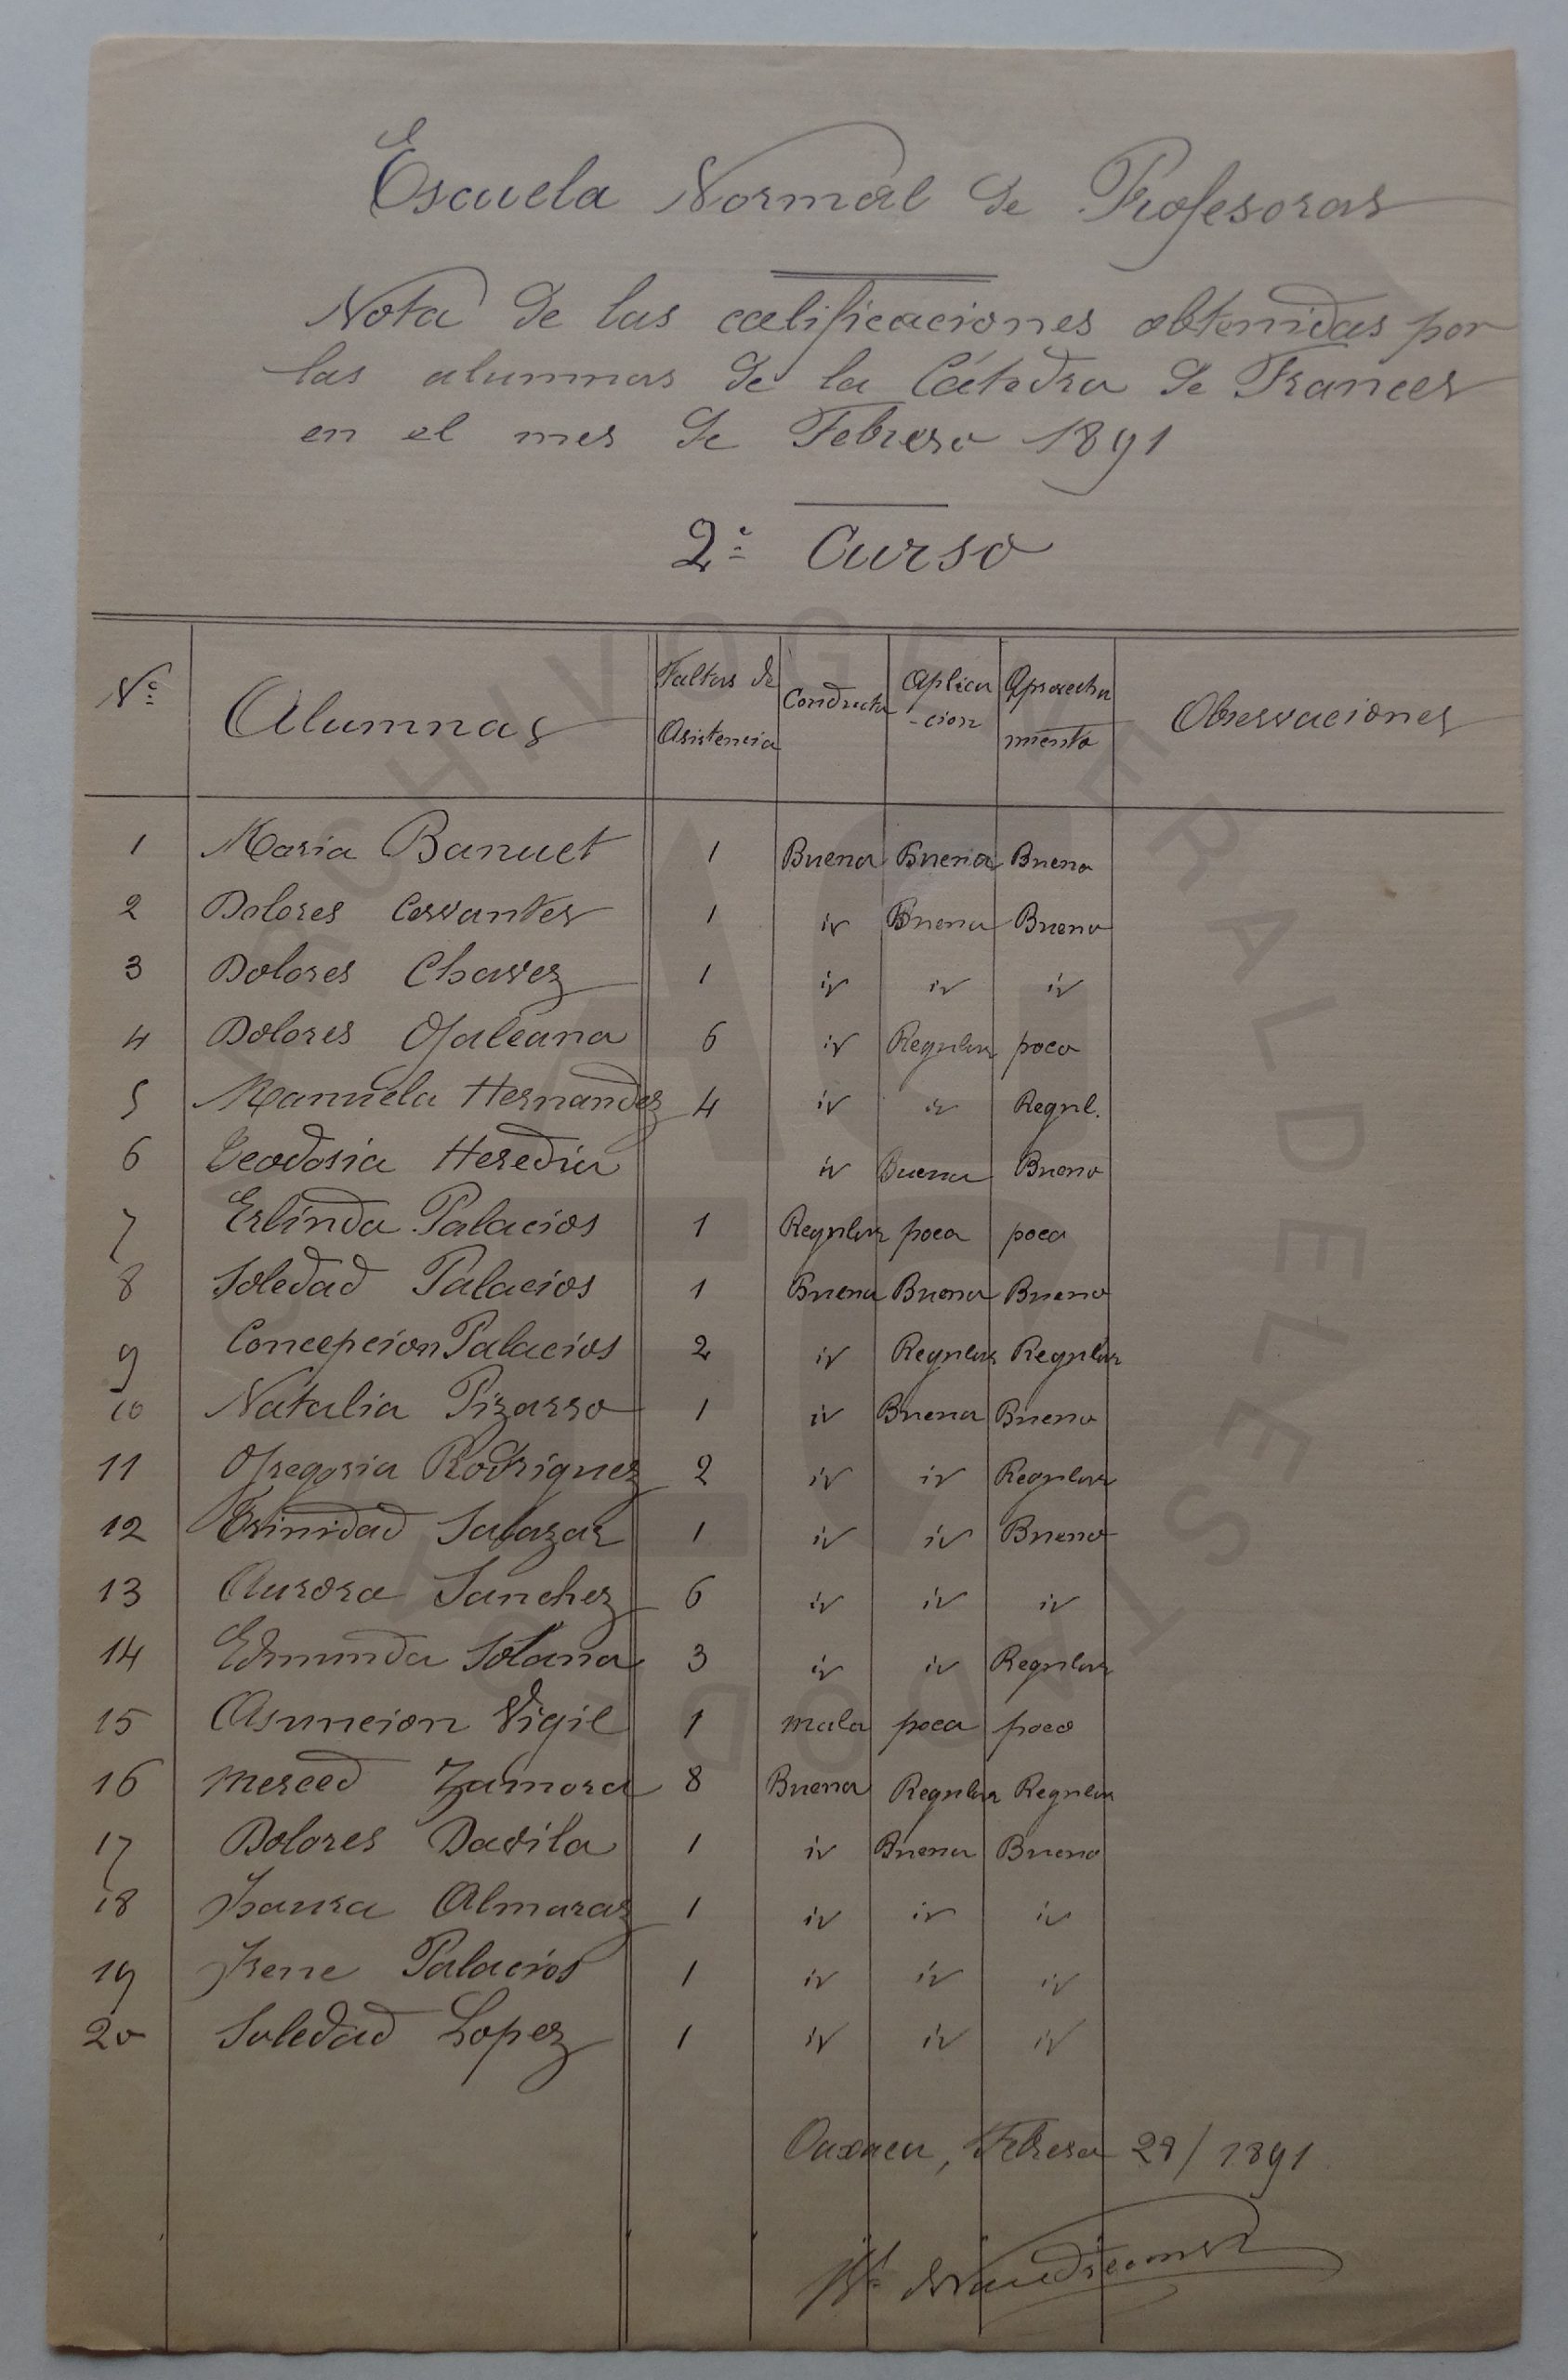 Escuela Normal de Profesoras
Nota de las calificaciones obtenidas por
las alumnas de la Cátedra de Frances
en el mes de Febrero 1891
2º Curso
Nº Alumnas Faltas de Asistencia Conducta Aplica-cion Aprovecha miento Observaciones
1 Maria Banuet 1 Buena Buena Bueno
2 Dolores Cervantes 1 id Buena Bueno
3 Dolores Chavez 1 id id id
4 Dolores Galeana 6 id Regular poco
5 Manuela Hernandez 4 id id Regul.
6 Teodosia Heredia id Buena Bueno
7 Erlinda Palacios 1 Regular poca poco
8 Soledad Palacios 1 Buena Buena Bueno
9 Concepcion Palacios 2 id Regular Regular
10 Natalia Pizarro 1 id Buena Bueno
11 Gregoria Rodriguez 2 id id Regular
12 Trinidad Salazar 1 id id Bueno
13 Aurora Sanchez 6 id id id
14 Edmunda Solana 3 id id Regular
15 Asuncion Vigil 1 mala poca poco
16 Merced Zamora 8 Buena Regular Regular
17 Dolores Davila 1 id Buena Bueno
18 Isaura Almaraz 1 id id id
19 Irene Palacios 1 id id id
20 Soledad Lopez 1 id id id
Oaxaca, Febrero 28/1891